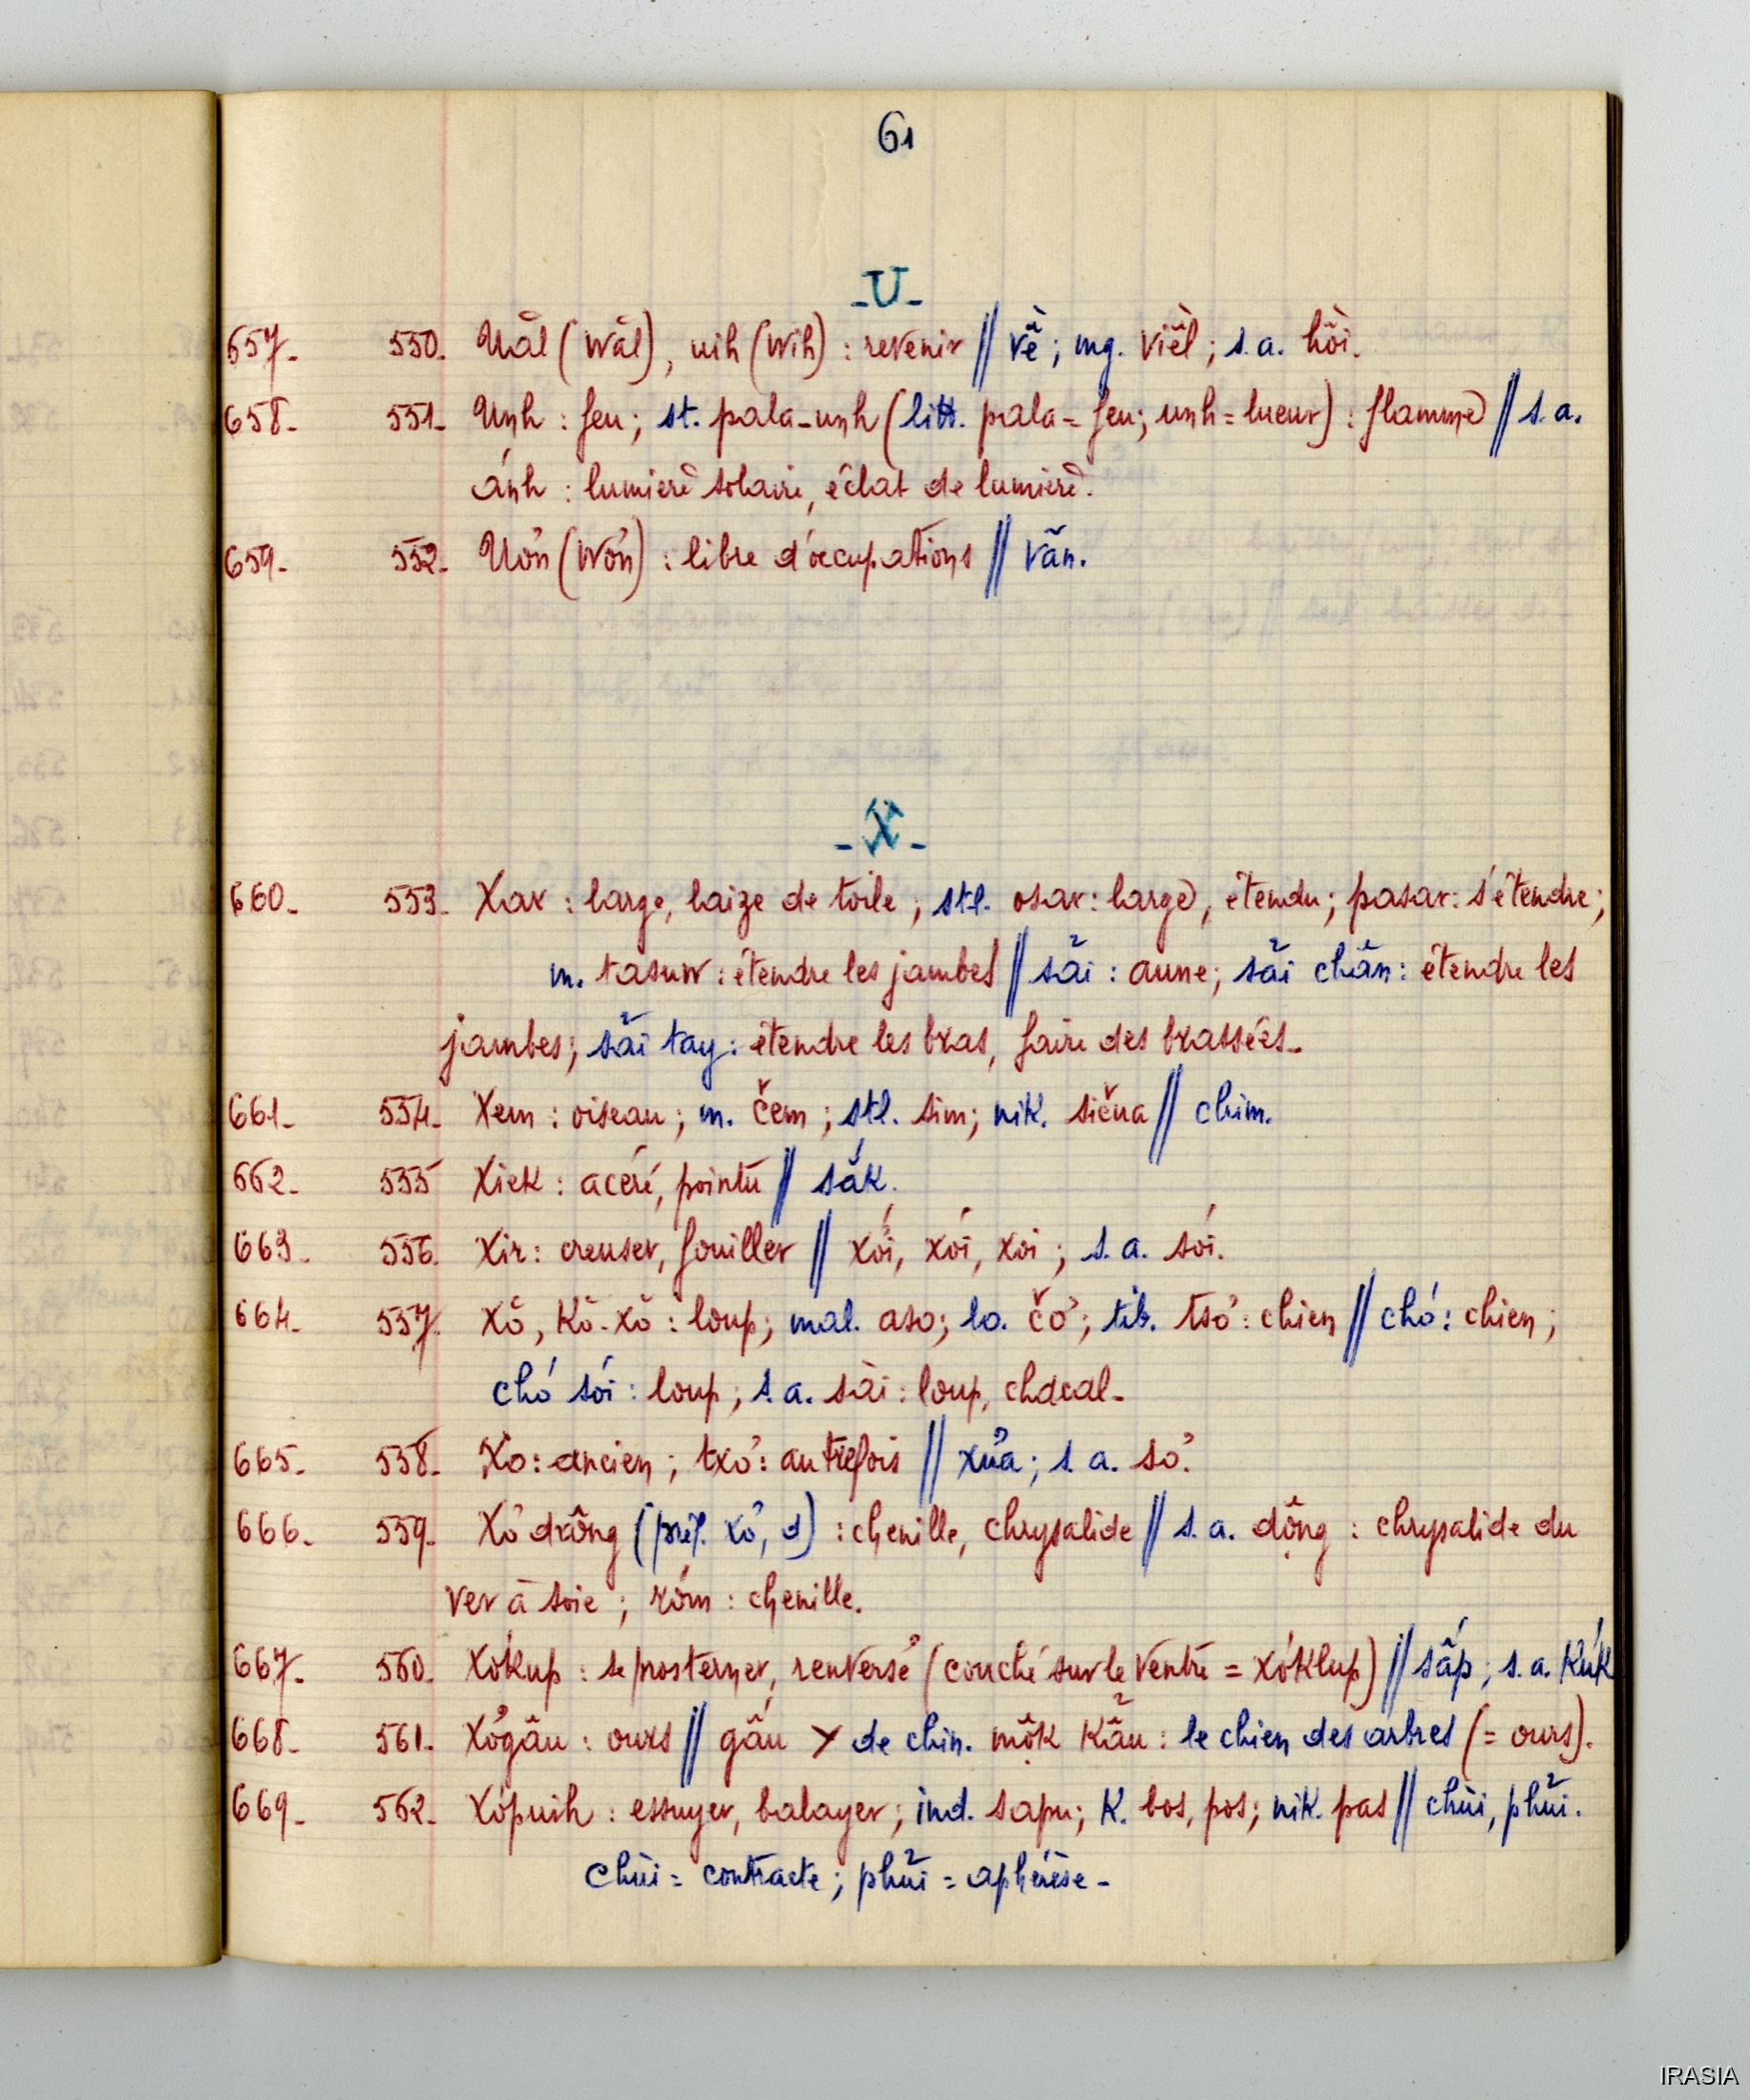 61
-U-
657- 550. Uăl (Wăl), uih (Wih) : revenir // về; mg. Viêl; s.a. hồi.
658- 551- Unh : feu; st. pala-unh (litt. pala = feu; unh = lueur) : flamme // s.a.
ánh : lumière solaire, éclat de lumière.
659- 552- Uơn (Wơn) : libre d'occupations // Vãn.
-X-
660- 553- Xar : large, laize de toile ; stl. osar : large, étendu ; pasar : s'étendre ;
m. tasuw : étendre les jambes // sải : aune ; sải chân : étendre les
jambes ; sải tay : étendre les bras, faire des brassées-
661- 554- Xem : oiseau ; m. čem ; stl. sim ; nik. sičua // chim.
662- 555 Xiek : acéré, pointu // sắk.
663- 556. Xir : creuser, fouiller // xới, xói, xoi ; s.a. sói.
664- 557. Xŏ, Kŏ-xŏ : loup ; mal. aso ; lo. čơ ; tib. tsơ : chien // chó : chien ;
chó sói : loup ; s.a. sài : loup, chacal-
665- 558- Xo : ancien ; txơ : autrefois // xưa ; s.a. sơ.
666- 559- Xơdrông (préf. xơ, d) : chenille, chrysalide // s.a. dộng : chrysalide du
ver à soie ; róm : chenille.
667- 560- Xơkup : se prosterner, renversé (couché sur le ventre = xơklup) // sấp ; s.a. Kúk
668- 561- Xơgâu : ours // gấu > de chin. mộk Kẩu : le chien des arbres (= ours).
669- 562- Xơpuih : essuyer, balayer ; ind. sapu ; K. bos, pos ; nik. pas // chùi, phủi.
Chùi = contracte ; phủi = aphérèse-
IRASIA